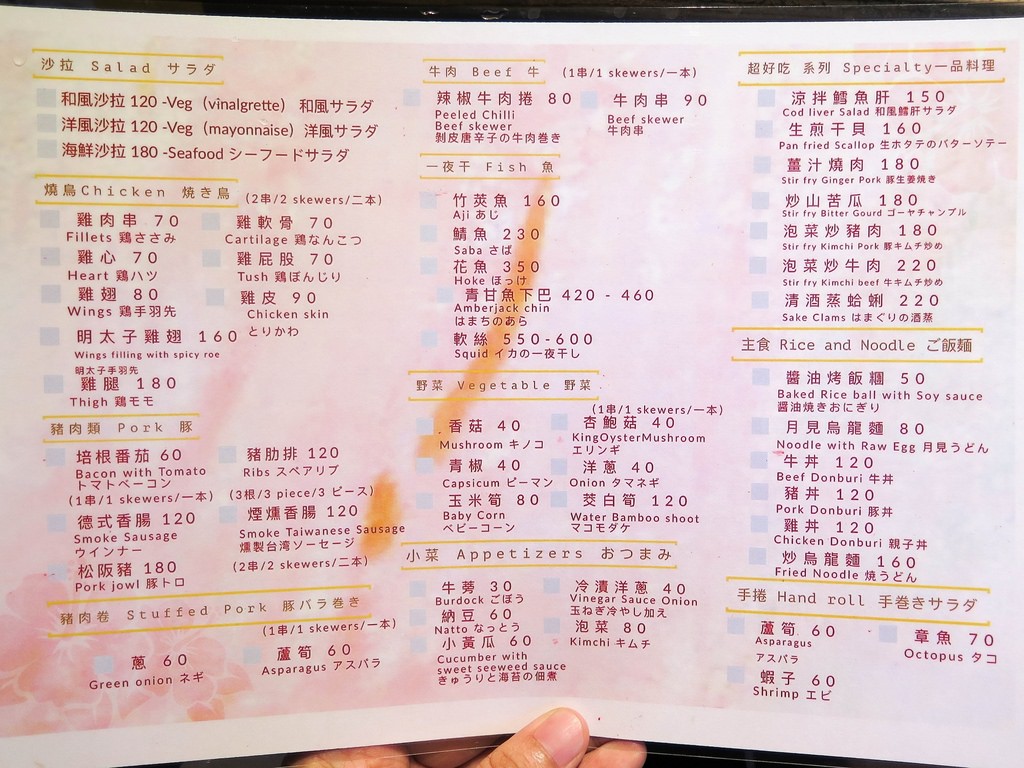 沙拉 Salad サラダ
和風沙拉 120 -Veg (vinalgrette) 和風サラダ
洋風沙拉 120 -Veg (mayonnaise) 洋風サラダ
海鮮沙拉 180 -Seafood シーフードサラダ
燒鳥Chicken 焼き鳥 (2串/2 skewers/二本)
雞肉串 70
Fillets 鶏ささみ
雞軟骨 70
Cartilage 鶏なんこつ
雞心 70
Heart 鶏ハツ
雞屁股 70
Tush 鶏ぼんじり
雞翅 80
Wings 鶏手羽先
雞皮 90
Chicken skin
とりかわ
明太子雞翅 160
Wings filling with spicy roe
明太子手羽先
雞腿 180
Thigh 鶏モモ
豬肉類 Pork 豚
培根番茄 60
Bacon with Tomato
トマトベーコン
(1串/1 skewers/一本)
豬肋排 120
Ribs スペアリブ
(3根/3 piece/3 ピース)
德式香腸 120
Smoke Sausage
ウインナー
煙燻香腸 120
Smoke Taiwanese Sausage
燻製台湾ソーセージ
(2串/2 skewers/二本)
松阪豬 180
Pork jowl 豚トロ
豬肉卷 Stuffed Pork 豚バラ巻き
(1串/1 skewers/一本)
蔥 60
Green onion ネギ
蘆筍 60
Asparagus アスパラ
牛肉 Beef 牛 (1串/1 skewers/一本)
辣椒牛肉捲 80
Peeled Chilli
Beef skewer
剝皮唐辛子の牛肉巻き
牛肉串 90
Beef skewer
牛肉串
一夜干 Fish 魚
竹莢魚 160
Aji あじ
鯖魚 230
Saba さば
花魚 350
Hoke ほっけ
青甘魚下巴 420 - 460
Amberjack chin
はまちのあら
軟絲 550-600
Squid イカの一夜干し
野菜 Vegetable 野菜
(1串/1 skewers/一本)
香菇 40
Mushroom キノコ
杏鮑菇 40
KingOysterMushroom
エリンギ
青椒 40
Capsicum ピーマン
洋蔥 40
Onion タマネギ
玉米筍 80
Baby Corn
ベビーコーン
茭白筍 120
Water Bamboo shoot
マコモダケ
小菜 Appetizers おつまみ
牛蒡 30
Burdock ごぼう
冷漬洋蔥 40
Vinegar Sauce Onion
玉ねぎ冷やし加え
納豆 60
Natto なっとう
泡菜 80
Kimchi キムチ
小黃瓜 60
Cucumber with
sweet seeweed sauce
きゅうりと海苔の佃煮
超好吃 系列 Specialty一品料理
涼拌鱈魚肝 150
Cod liver Salad 和風鱈肝サラダ
生煎干貝 160
Pan fried Scallop 生ホタテのバターソテー
薑汁燒肉 180
Stir fry Ginger Pork 豚生姜焼き
炒山苦瓜 180
Stir fry Bitter Gourd ゴーヤチャンプル
泡菜炒豬肉 180
Stir fry Kimchi Pork 豚キムチ炒め
泡菜炒牛肉 220
Stir fry Kimchi beef 牛キムチ炒め
清酒蒸蛤蜊 220
Sake Clams はまぐりの酒蒸
主食 Rice and Noodle ご飯麺
醬油烤飯糰 50
Baked Rice ball with Soy sauce
醤油焼きおにぎり
月見烏龍麵 80
Noodle with Raw Egg 月見うどん
牛丼 120
Beef Donburi 牛丼
豬丼 120
Pork Donburi 豚丼
雞丼 120
Chicken Donburi 親子丼
炒烏龍麵 160
Fried Noodle 焼うどん
手捲 Hand roll 手巻きサラダ
蘆筍 60
Asparagus
アスパラ
章魚 70
Octopus タコ
蝦子 60
Shrimp エビ